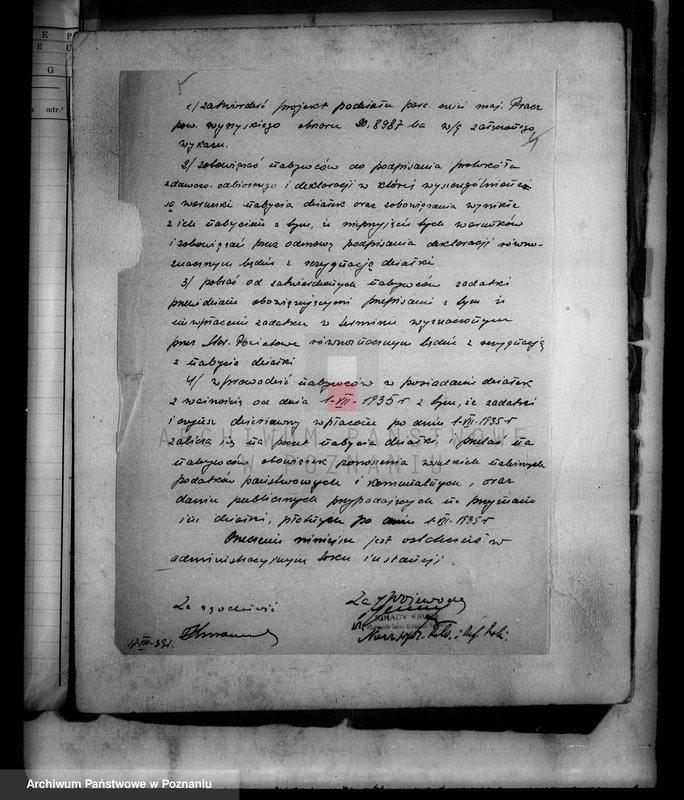 1/ zatwierdzić projekt podziału parc. części maj. Bracz
pow. wyrzyskiego obszaru 20.8987 ha w/g załączonego
wykazu.
2/ zobowiązać nabywców do podpisania protokółu
zdawczo-odbiorczego i deklaracji w której wyszczególnione
są warunki nabycia działek oraz zobowiązania wynikłe
z ich nabycia z tym, że nieprzyjęcie tych warunków
i zobowiązań przez odmowę podpisania deklaracji równo-
znacznym będzie z rezygnacją działki
3/ pobrać od zatwierdzonych nabywców zadatki
przewidziane obowiązującymi przepisami z tym że
niewpłacenie zadatku w terminie wyznaczonym
przez Star. Powiatowe równoznacznym będzie z rezygnacją
z nabycia działki
4/ wprowadzić nabywców w posiadanie działek
z ważnością od dnia 1-VII-1935 r z tym, że zadatki
i czynsz dzierżawny wpłacony po dniu 1-VII-1935 r
zalicza się na poczet nabycia działki i przelać na
nabywców obowiązek ponoszenia wszelkich
podatków państwowych i komunalnych, oraz
danin publicznych przypadających na
im działki, płatnych po dniu 1-VII-1935 r
Orzeczenie niniejsze jest ostateczne w
administracyjnym toku instancji
Za zgodność
Za Wojewodę
IGNACY
ARCHIWUM PAŃSTWOWE
W POZNANIU
Archiwum Państwowe w Poznaniu